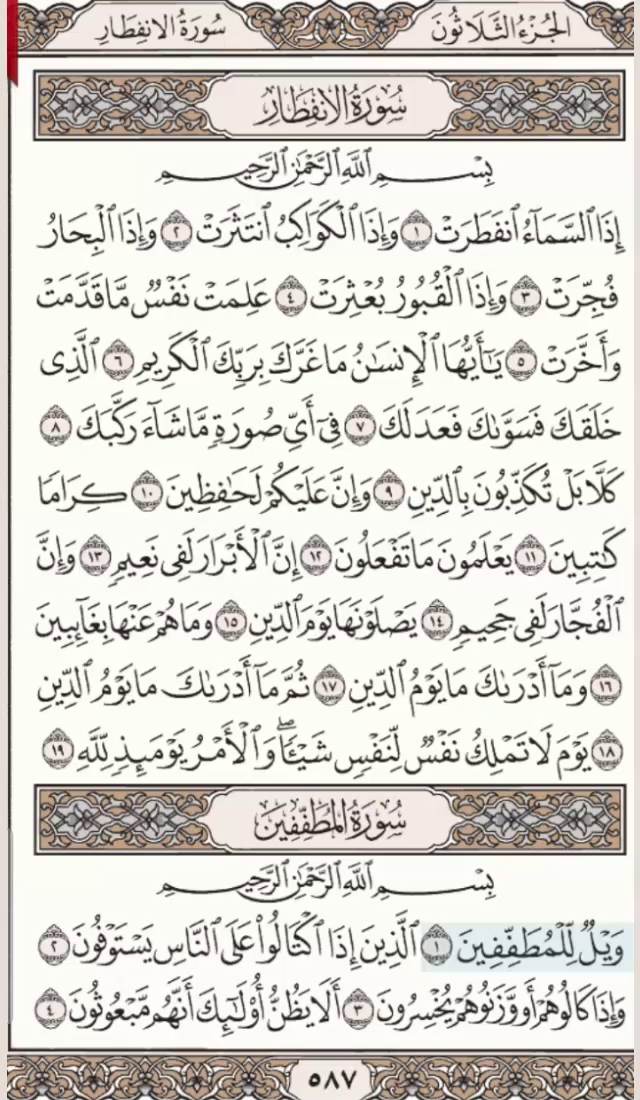 الجُزْءُ الثَّلَاثُونَ سُورَةُ الانفِطَارِ
سُورَةُ الانفِطَارِ
بِسْمِ ٱللَّهِ ٱلرَّحْمَٰنِ ٱلرَّحِيمِ
إِذَا ٱلسَّمَآءُ ٱنفَطَرَتْ ١ وَإِذَا ٱلْكَوَاكِبُ ٱنتَثَرَتْ ٢ وَإِذَا ٱلْبِحَارُ
فُجِّرَتْ ٣ وَإِذَا ٱلْقُبُورُ بُعْثِرَتْ ٤ عَلِمَتْ نَفْسٌ مَّا قَدَّمَتْ
وَأَخَّرَتْ ٥ يَٰٓأَيُّهَا ٱلْإِنسَٰنُ مَا غَرَّكَ بِرَبِّكَ ٱلْكَرِيمِ ٦ ٱلَّذِى
خَلَقَكَ فَسَوَّىٰكَ فَعَدَلَكَ ٧ فِىٓ أَىِّ صُورَةٍ مَّا شَآءَ رَكَّبَكَ ٨
كَلَّا بَلْ تُكَذِّبُونَ بِٱلدِّينِ ٩ وَإِنَّ عَلَيْكُمْ لَحَٰفِظِينَ ١٠ كِرَامًا
كَٰتِبِينَ ١١ يَعْلَمُونَ مَا تَفْعَلُونَ ١٢ إِنَّ ٱلْأَبْرَارَ لَفِى نَعِيمٍ ١٣ وَإِنَّ
ٱلْفُجَّارَ لَفِى جَحِيمٍ ١٤ يَصْلَوْنَهَا يَوْمَ ٱلدِّينِ ١٥ وَمَا هُمْ عَنْهَا بِغَآئِبِينَ
١٦ وَمَآ أَدْرَىٰكَ مَا يَوْمُ ٱلدِّينِ ١٧ ثُمَّ مَآ أَدْرَىٰكَ مَا يَوْمُ ٱلدِّينِ
١٨ يَوْمَ لَا تَمْلِكُ نَفْسٌ لِّنَفْسٍ شَيْـًٔا ۖ وَٱلْأَمْرُ يَوْمَئِذٍ لِّلَّهِ ١٩
سُورَةُ المُطَفِّفِينَ
بِسْمِ ٱللَّهِ ٱلرَّحْمَٰنِ ٱلرَّحِيمِ
وَيْلٌ لِّلْمُطَفِّفِينَ ١ ٱلَّذِينَ إِذَا ٱكْتَالُوا۟ عَلَى ٱلنَّاسِ يَسْتَوْفُونَ ٢
وَإِذَا كَالُوهُمْ أَو وَّزَنُوهُمْ يُخْسِرُونَ ٣ أَلَا يَظُنُّ أُو۟لَٰٓئِكَ أَنَّهُم مَّبْعُوثُونَ ٤
٥٨٧